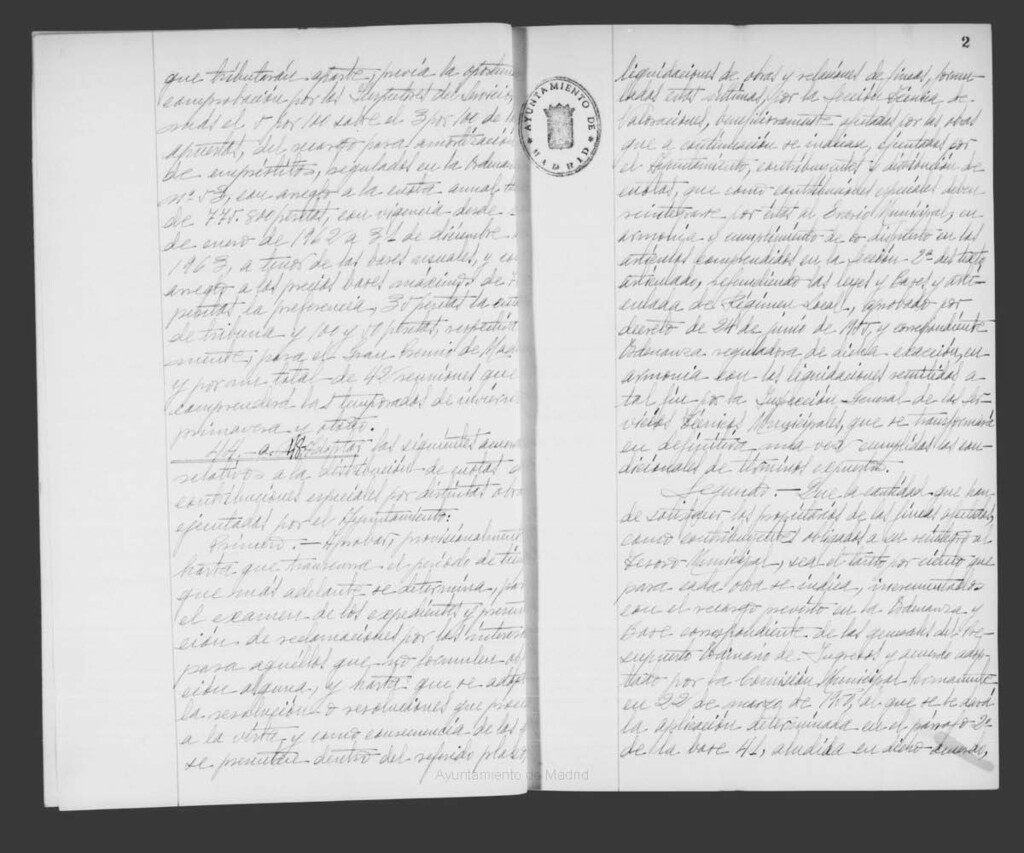 que tributarán aparte, previa la oportuna
comprobación por los Inspectores del Servicio,
más el 5 por 100 sobre el 3 por 100 de la
apuestas, del para amortización
de empréstitos, regulados en la Ordenan
nº 53, con arreglo a la cuota anual
de 775.800 pesetas, con vigencia desde
de enero de 1962 a 31 de diciembre
1963, a tenor de las bases usuales, y con
arreglo a los precios bases máximos de
pesetas la preferencia, 30 pesetas la entra
de tribuna y 100 y 50 pesetas, respectiva
mente, para el Gran Premio de Mad
y por un total de 42 reuniones que
comprenderá las temporadas de invierno
primavera y otoño.
44 a 48 Adoptar los siguientes acuerd
relativos a la distribución de cuotas
contribuciones especiales por distintas obra
ejecutadas por el Ayuntamiento:
Primero.- Aprobar, provisionalmente
hasta que transcurra el período de tiem
que más adelante se determina, para
el examen de los expedientes y presen
ción de reclamaciones por los interesa
para aquéllos que no formulen obje
ción alguna, y hasta que se adop
la resolución o resoluciones que proce
a la vista y como consecuencia de las
se presenten dentro del referido plazo,
AYUNTAMIENTO DE MADRID
2
liquidaciones de obras y relaciones de fincas, formu-
ladas estas últimas por la Sección Técnica de
Valoraciones, afectadas por las obras
que a continuación se indican, ejecutadas por
el Ayuntamiento, contribuyentes y distribución de
cuotas, que como contribuciones especiales deben
reintegrarse por éstas al Erario Municipal, en
armonía y cumplimiento de lo dispuesto en los
artículos comprendidos en la Sección 2ª del texto
articulado, refundiendo las leyes y Bases y arti-
culada de Régimen Local, aprobado por
decreto de 24 de junio de y correspondiente
Ordenanza reguladora de dicha exacción, en
armonía con las liquidaciones remitidas a
tal fin por la Inspección General de los Ser-
vicios Técnicos Municipales, que se transformará
en definitiva una vez cumplidas las con-
dicionales de términos expuestos.
Segundo.- Que la cantidad que han
de satisfacer los propietarios de las fincas afectadas,
como contribuyentes obligados a su reintegro al
Tesoro Municipal, sea el tanto por ciento que
para cada obra se indica, incrementados
con el recargo previsto en la Ordenanza y
Base correspondiente de las generales del Pre-
supuesto Ordinario de Ingresos y acuerdo adop-
tado por la Comisión Municipal Permanente
en 22 de marzo de al que se le dará
la aplicación determinada en el párrafo 2º
de la base 41, aludida en dicho acuerdo,
Ayuntamiento de Madrid